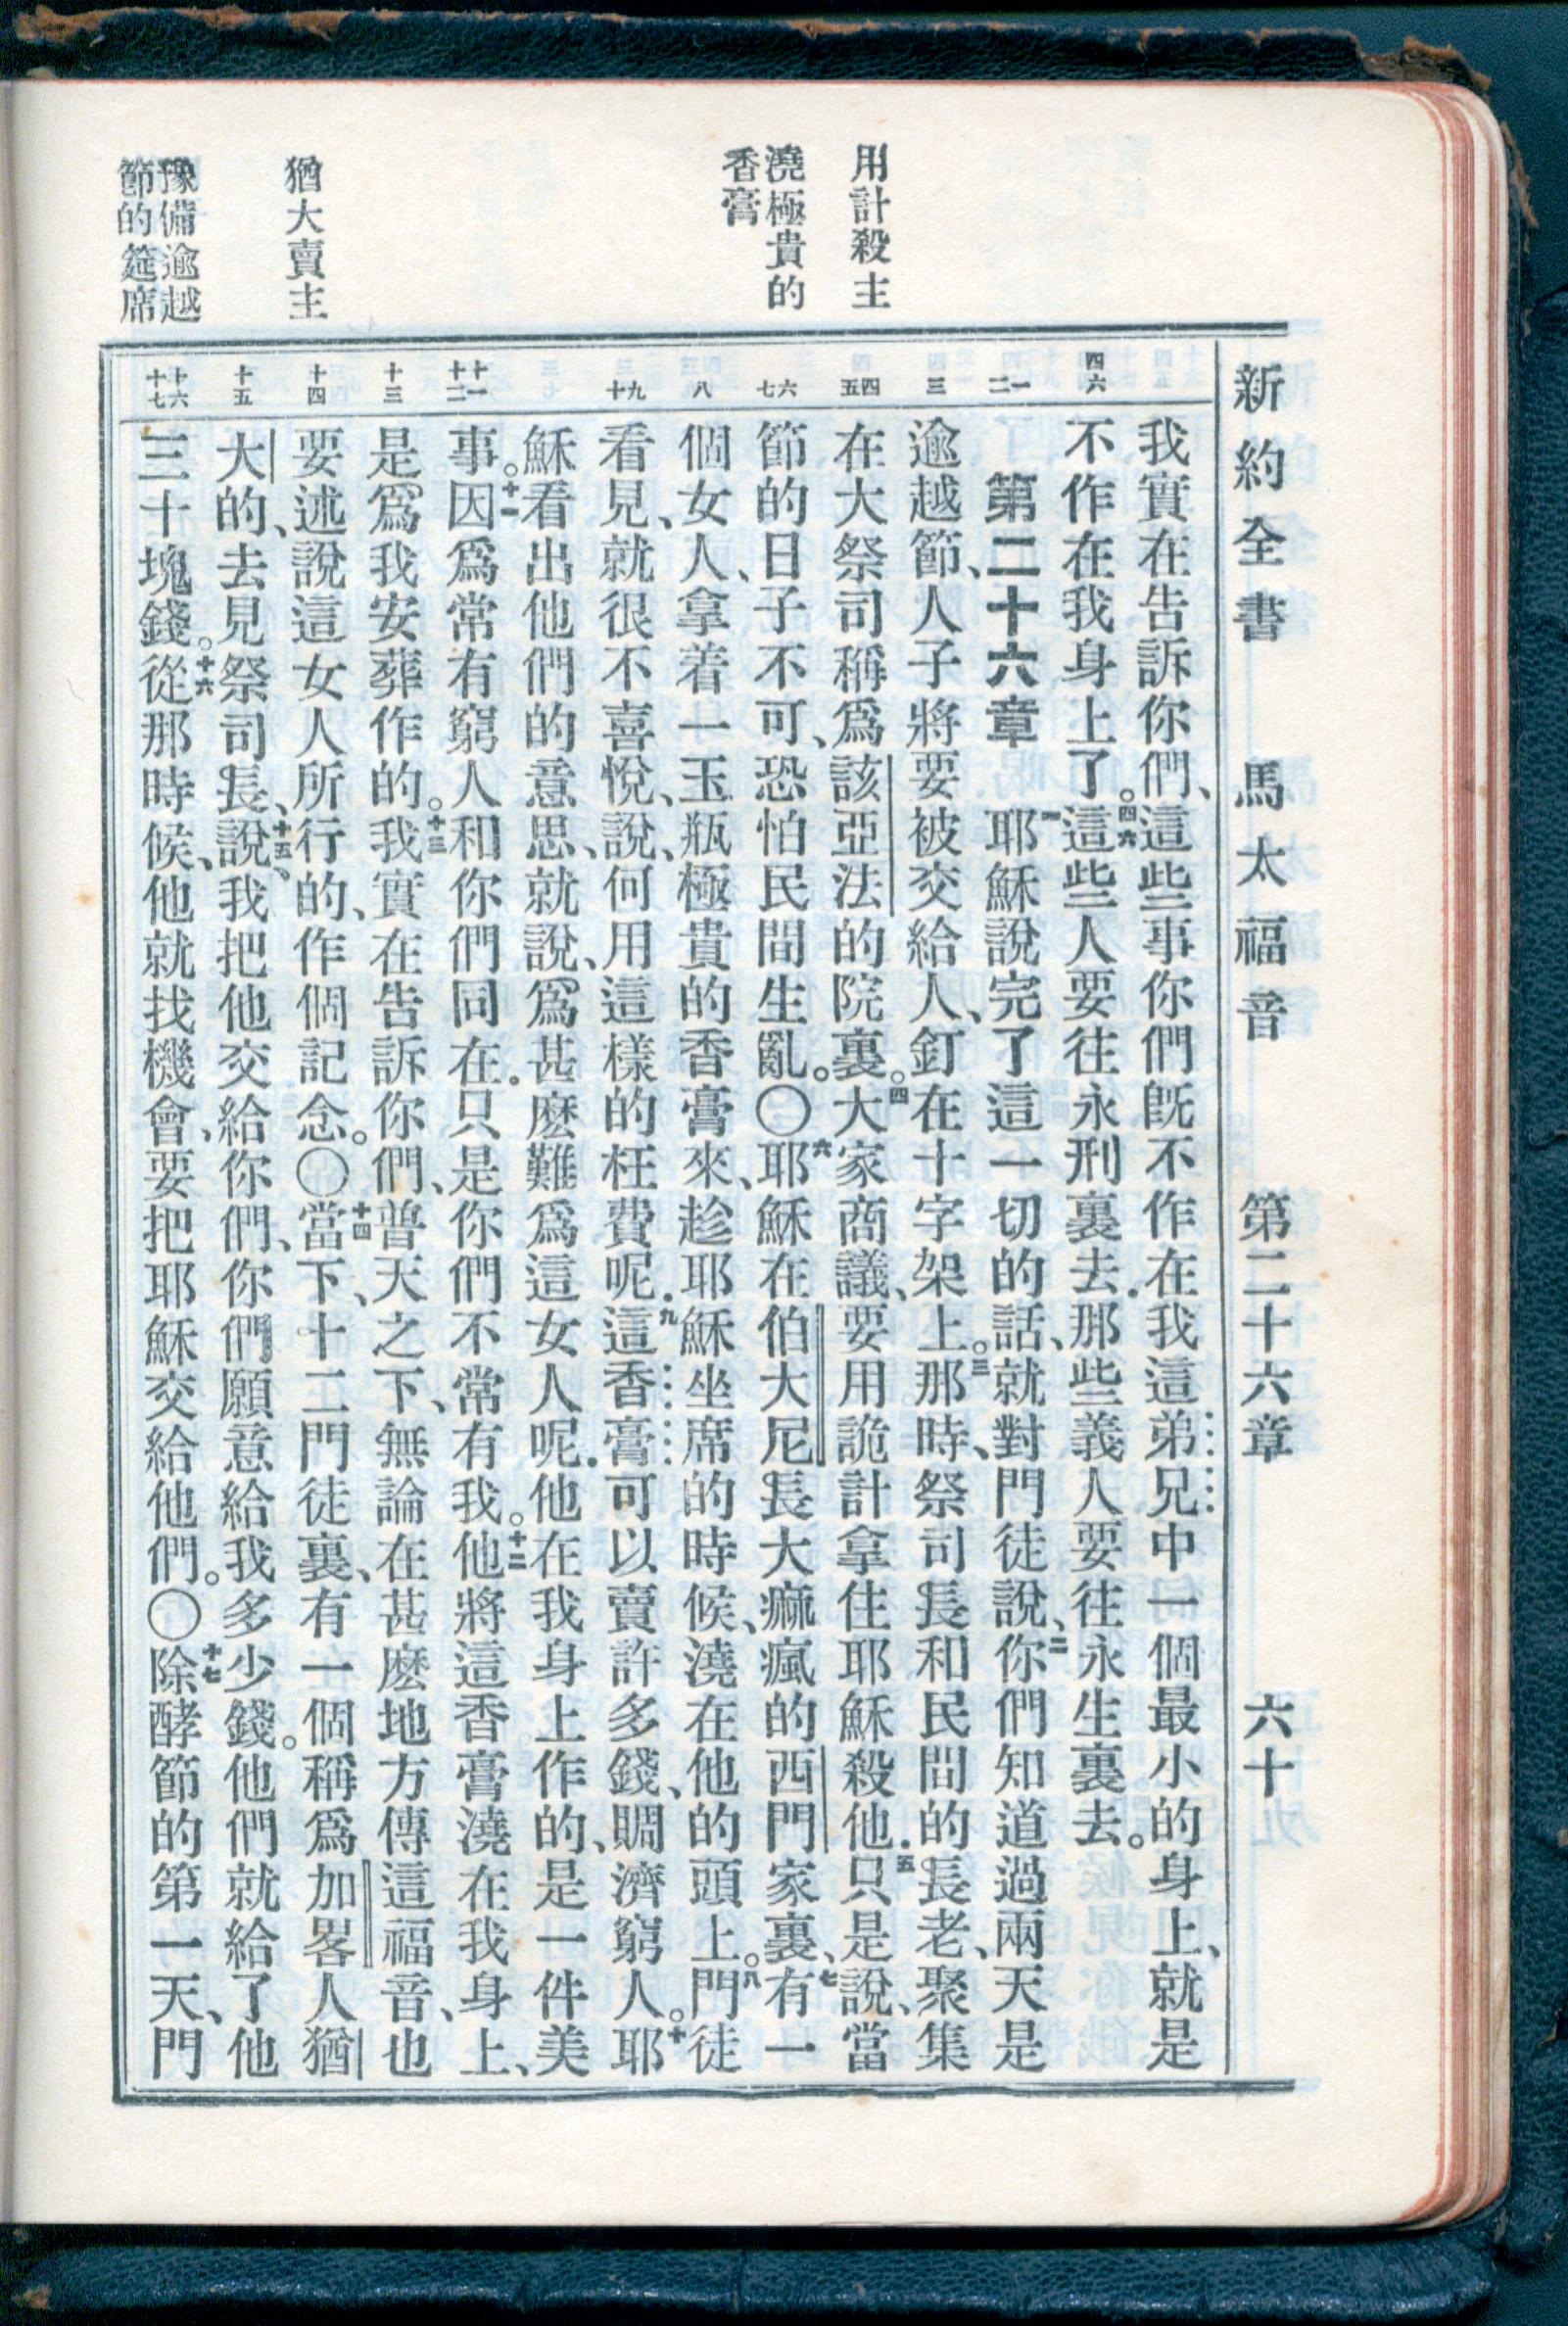 新約全書 馬太福音 第二十六章 六十
用計殺主
澆極貴的
香膏
猶大賣主
豫備逾越
節的筵席
四六
一二
三
四五
六七
八
九十
十一十二
十三
十四
十五
十六十七
我實在告訴你們、這些事你們既不作在我這弟兄中一個最小的身上、就是
不作在我身上了。四六這些人要往永刑裏去．那些義人要往永生裏去。
第二十六章 一耶穌說完了這一切的話、就對門徒說、二你們知道過兩天是
逾越節、人子將要被交給人、釘在十字架上。三那時、祭司長和民間的長老、聚集
在大祭司稱爲該亞法的院裏。四大家商議、要用詭計拿住耶穌殺他．五只是說、當
節的日子不可、恐怕民間生亂。〇六耶穌在伯大尼長大痲瘋的西門家裏、七有一
個女人、拿着一玉瓶極貴的香膏來、趁耶穌坐席的時候、澆在他的頭上。八門徒
看見、就很不喜悅、說、何用這樣的枉費呢．九這香膏可以賣許多錢、賙濟窮人。十耶
穌看出他們的意思、就說、爲甚麽難爲這女人呢．他在我身上作的、是一件美
事。十一因爲常有窮人和你們同在．只是你們不常有我。十二他將這香膏澆在我身上、
是爲我安葬作的。十三我實在告訴你們、普天之下、無論在甚麽地方傳這福音、也
要述說這女人所行的、作個記念。〇十四當下、十二門徒裏、有一個稱爲加畧人猶
大的、去見祭司長、十五說、我把他交給你們、你們願意給我多少錢。他們就給了他
三十塊錢。十六從那時候、他就找機會、要把耶穌交給他們。〇十七除酵節的第一天、門